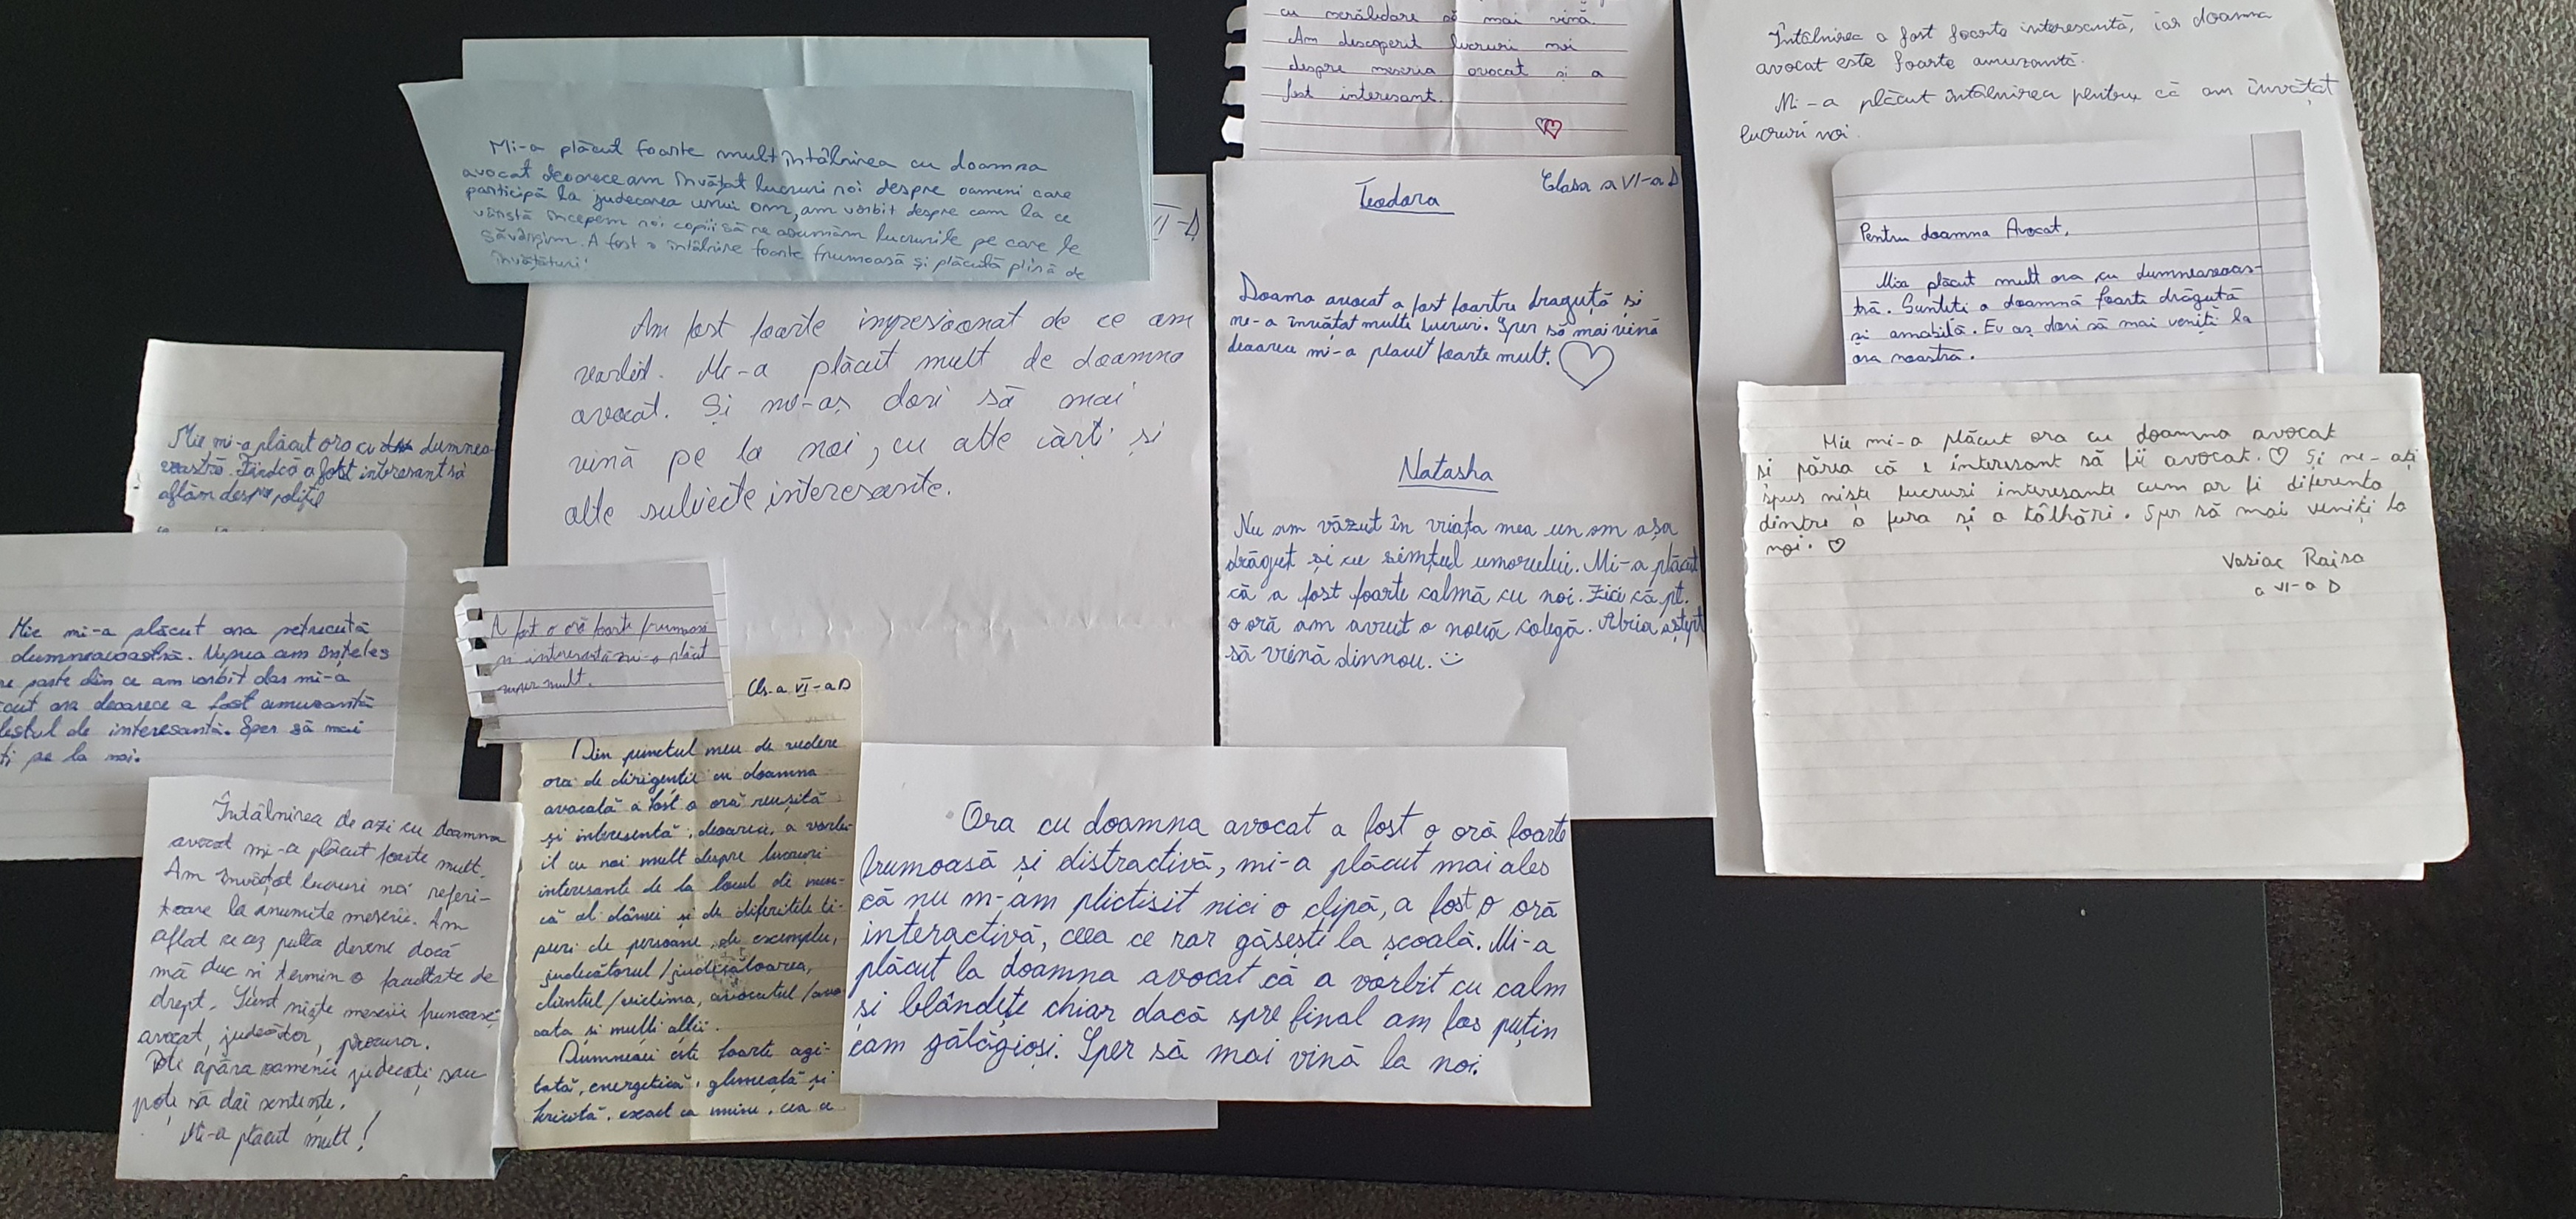 Mi-a plăcut foarte mult întâlnirea cu doamna
avocat deoarece am învățat lucruri noi despre oameni care
participă la judecarea unui om, am vorbit despre cam la ce
vârstă începem noi copiii să ne asumăm lucrurile pe care le
săvârșim. A fost o întâlnire foarte frumoasă și plăcută plină de
învățături!
II-D
Am fost foarte impresionat de ce am
vorbit. Mi-a plăcut mult de doamna
avocat. Și mi-aș dori să mai
vină pe la noi, cu alte cărți și
alte subiecte interesante.
cu nerăbdare să mai vină.
Am descoperit lucruri noi
despre meseria avocat și a
fost interesant.
Teodora
Clasa a VI-a D
Doama avocat a fost foartru draguță și
ne-a învățat multe lucruri. Sper să mai vină
deoarece mi-a placut foarte mult.
Natasha
Nu am văzut în vriața mea un om așa
drăguț și cu simțul umorului. Mi-a plăcut
că a fost foarte calmă cu noi. Zici că pt.
o oră am avut o nouă colegă. Abria aștept
să vrină dinnou.
Întâlnirea a fost foarte interesantă, iar doamna
avocat este foarte amuzantă.
Mi-a plăcut întâlnirea pentru că am învățat
lucruri noi.
Pentru doamna Avocat,
Mia plăcut mult ora cu dumneavoas-
tră. Sunteti o doamnă foarte drăguță
și amabilă. Eu aș dori să mai veniți la
ora noastră.
Mie mi-a plăcut ora cu doamna avocat
și părea că e interesant să fii avocat. Și ne-ați
spus niște lucruri interesante cum ar fi diferența
dintre a fura și a tâlhări. Sper să mai veniți la
noi.
Vasiac Raisa
a VI-a D
Mie mi-a plăcut ora cu dumnea-
voastră. Findcă a fost interesant să
aflăm despre poliție
Mie mi-a plăcut ora petrecută
dumneavoastră. Vupua am înțeles
re paste din ce am vorbit das mi-a
cut ora deoarece a fost amuzantă
destul de interesantă. Sper să mai
ti pe la noi.
A fost o oră foarte frumoasă
și interesantă mi-a plăcut
super mult.
Întâlnirea de azi cu doamna
avocat mi-a plăcut foarte mult.
Am învățat lucruri noi referi-
toare la anumite meserii. Am
aflat ce aș putea devene dacă
mă duc si termin o facultate de
drept. Sunt niște meserii frumoase,
avocat, judecător, procuror.
Poti apăra oamenii judecați sau
poți să dai sentințe.
Mi-a placut mult!
Cls-a VI-a D
Din punctul meu de vedere
ora de dirigenție cu doamna
avocată a fost o oră reușită
și interesantă, deoarece, a vorbi-
it cu noi mult despre lucruri
interesante de la locul de mun-
că al dânsei și de diferitele ti-
puri de persoane, de exemplu,
judecătorul/judecătoarea,
clientul/victima, avocatul/avo-
cata și mulți alții.
Dumneaei este foarte agi-
tată, energetică, glumeață și
fericită, exact ca mine, cea ce
Ora cu doamna avocat a fost o oră foarte
frumoasă și distractivă, mi-a plăcut mai ales
că nu m-am plictisit nici o clipă, a fost o oră
interactivă, ceea ce rar găsești la școală. Mi-a
plăcut la doamna avocat că a vorbit cu calm
și blândețe chiar dacă spre final am fos puțin
cam gălăgioși. Sper să mai vină la noi.